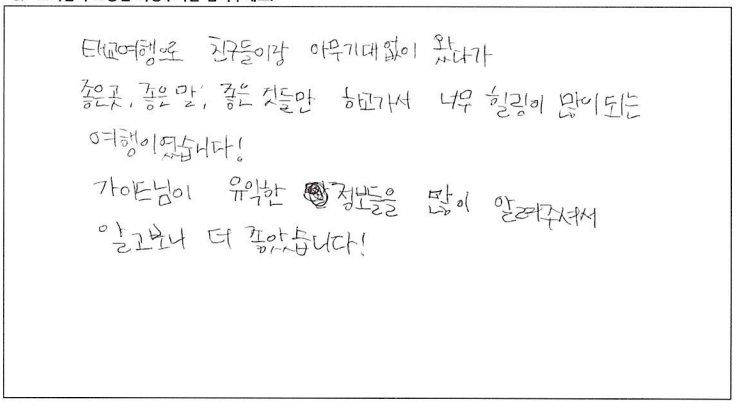 태교여행으로 친구들이랑 아무기대없이 왔다가
좋은곳, 좋은 말, 좋은 것들만 하고가서 너무 힐링이 많이 되는
여행이였습니다!
가이드님이 유익한 정보들을 많이 알려주셔서
알고보니 더 좋았습니다!